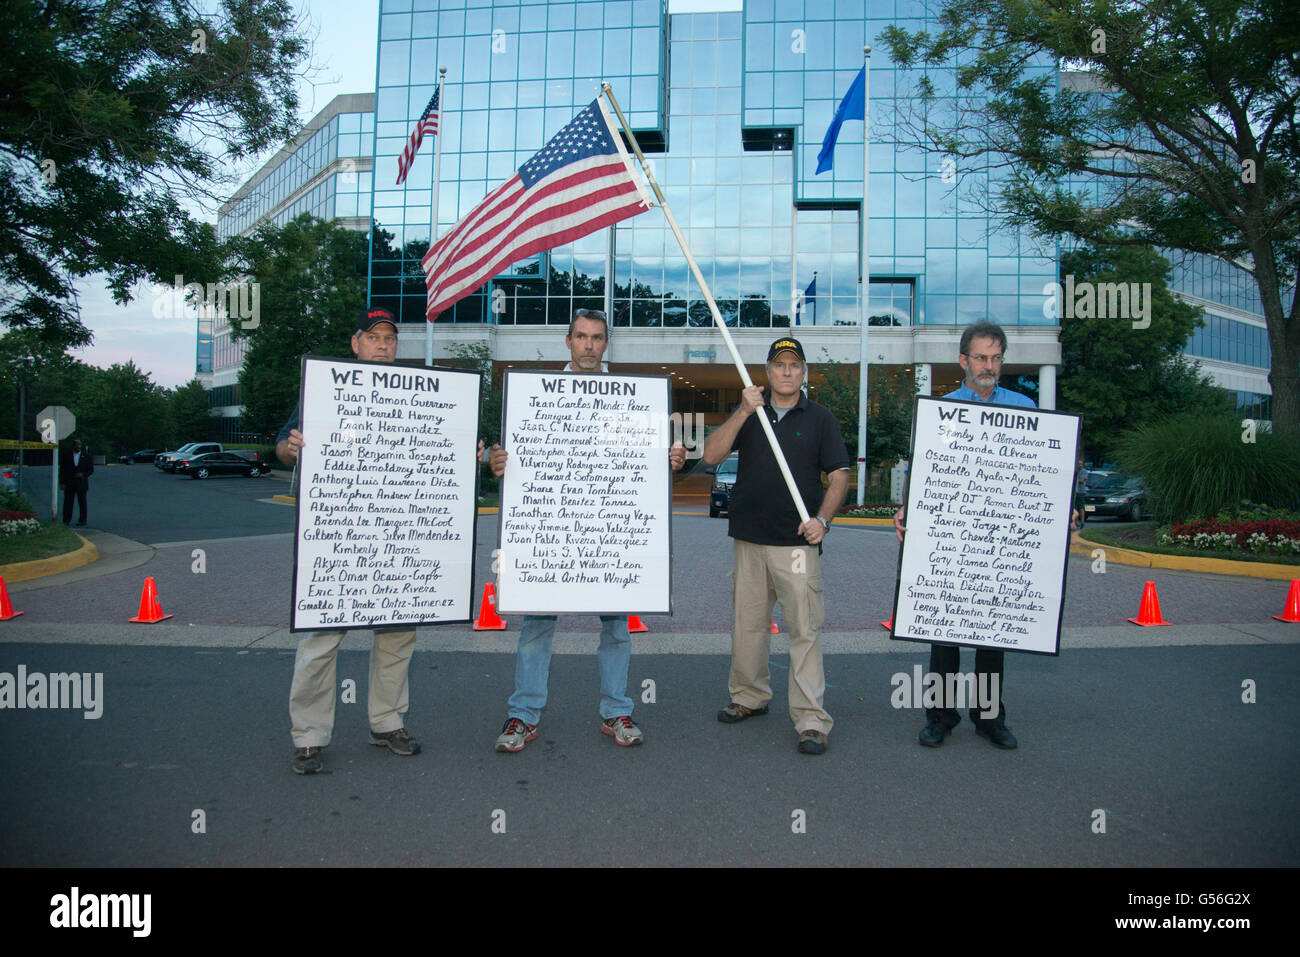 NRA
NRA
WE MOURN
Juan Ramon Guerrero
Paul Terrell Henry
Frank Hernandez
Miguel Angel Honorato
Jason Benjamin Josaphat
Eddie Jamoldroy Justice
Anthony Luis Laureano Disla
Christopher Andrew Leinonen
Alejandro Barrios Martinez
Brenda Lee Marquez McCool
Gilberto Ramon Silva Mendendez
Kimberly Morris
Akyra Monet Murry
Luis Omar Ocasio-Capo
Eric Ivan Ortiz Rivera
Geraldo A. "Drake" Ortiz-Jimenez
Joel Rayon Paniagua
WE MOURN
Jean Carlos Mendez Perez
Enrique L. Rios Jr.
Jean C. Nieves Rodriguez
Xavier Emmanuel Serrano Rosado
Christopher Joseph Sanfeliz
Yilmary Rodriguez Solivan
Edward Sotomayor Jr.
Shane Evan Tomlinson
Martin Benitez Torres
Jonathan Antonio Camuy Vega
Franky Jimmie Dejesus Velazquez
Juan Pablo Rivera Velazquez
Luis S. Vielma
Luis Daniel Wilson-Leon
Jerald Arthur Wright
WE MOURN
Stanley A Almodovar III
Amanda Alvear
Oscar A Aracena-Montero
Rodolfo Ayala-Ayala
Antonio Davon Brown
Darryl "DJ" Roman Burt II
Angel L. Candelario-Padro
Javier Jorge-Reyes
Juan Chevez-Martinez
Luis Daniel Conde
Cory James Connell
Tevin Eugene Crosby
Deonka Deidra Drayton
Simon Adrian Carrillo Fernandez
Leroy Valentin Fernandez
Mercedez Marisol Flores
Peter O. Gonzales-Cruz
alamy
Image ID: G56G2X
www.alamy.com